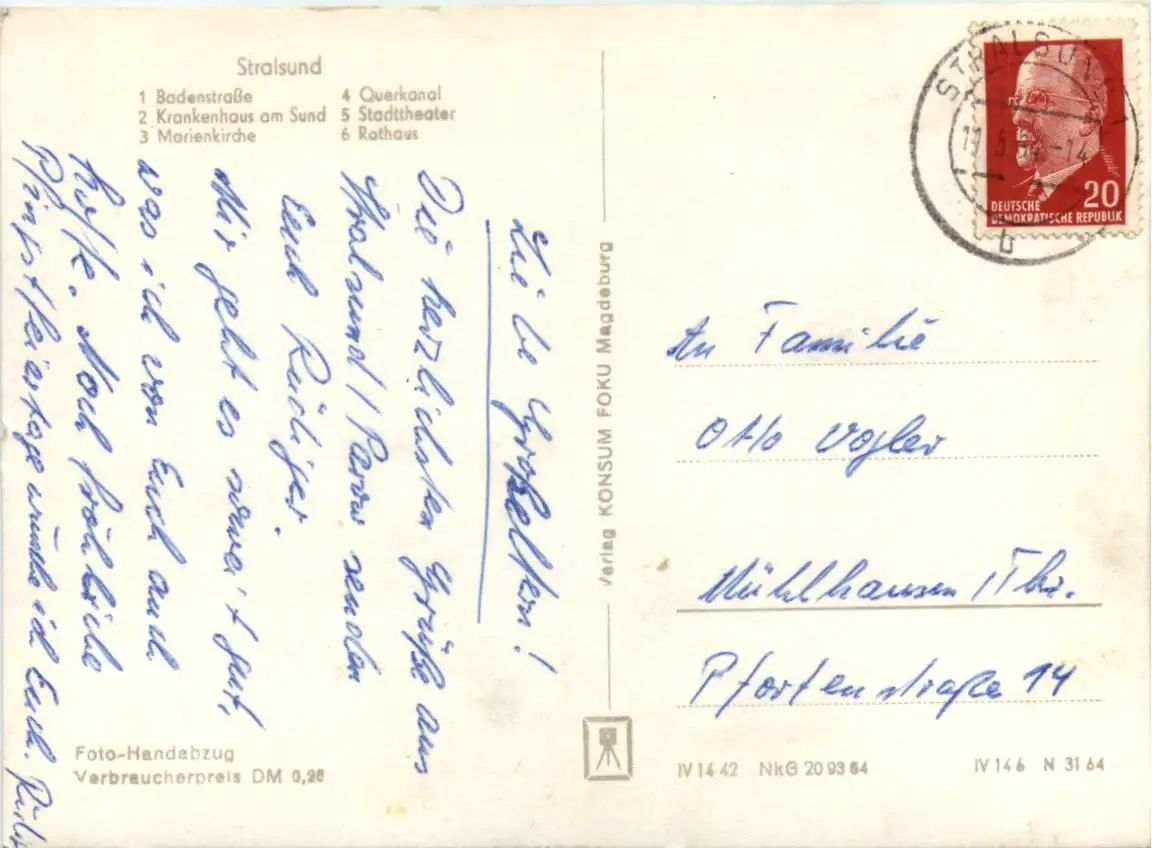 Stralsund
1 Badenstraße
2 Krankenhaus am Sund
3 Marienkirche
4 Querkanal
5 Stadttheater
6 Rathaus
Liebe Großeltern!
Die herzlichsten Grüße aus
Stralsund / Parow senden
Euch Rüdiger.
Mir geht es soweit gut,
was ich von Euch auch
hoffe. Noch fröhliche
Pfingstfeiertage wünsche ich Euch.
Foto-Handabzug
Verbraucherpreis DM 0,26
Verlag KONSUM FOKU Magdeburg
STRALSUND 1
-14
b
20
DEUTSCHE
DEMOKRATISCHE REPUBLIK
An Familie
Otto Vogler
Mühlhausen / Thür.
Pfortenstraße 14
IV 14 42 NkG 20 93 64
IV 14 6 N 31 64